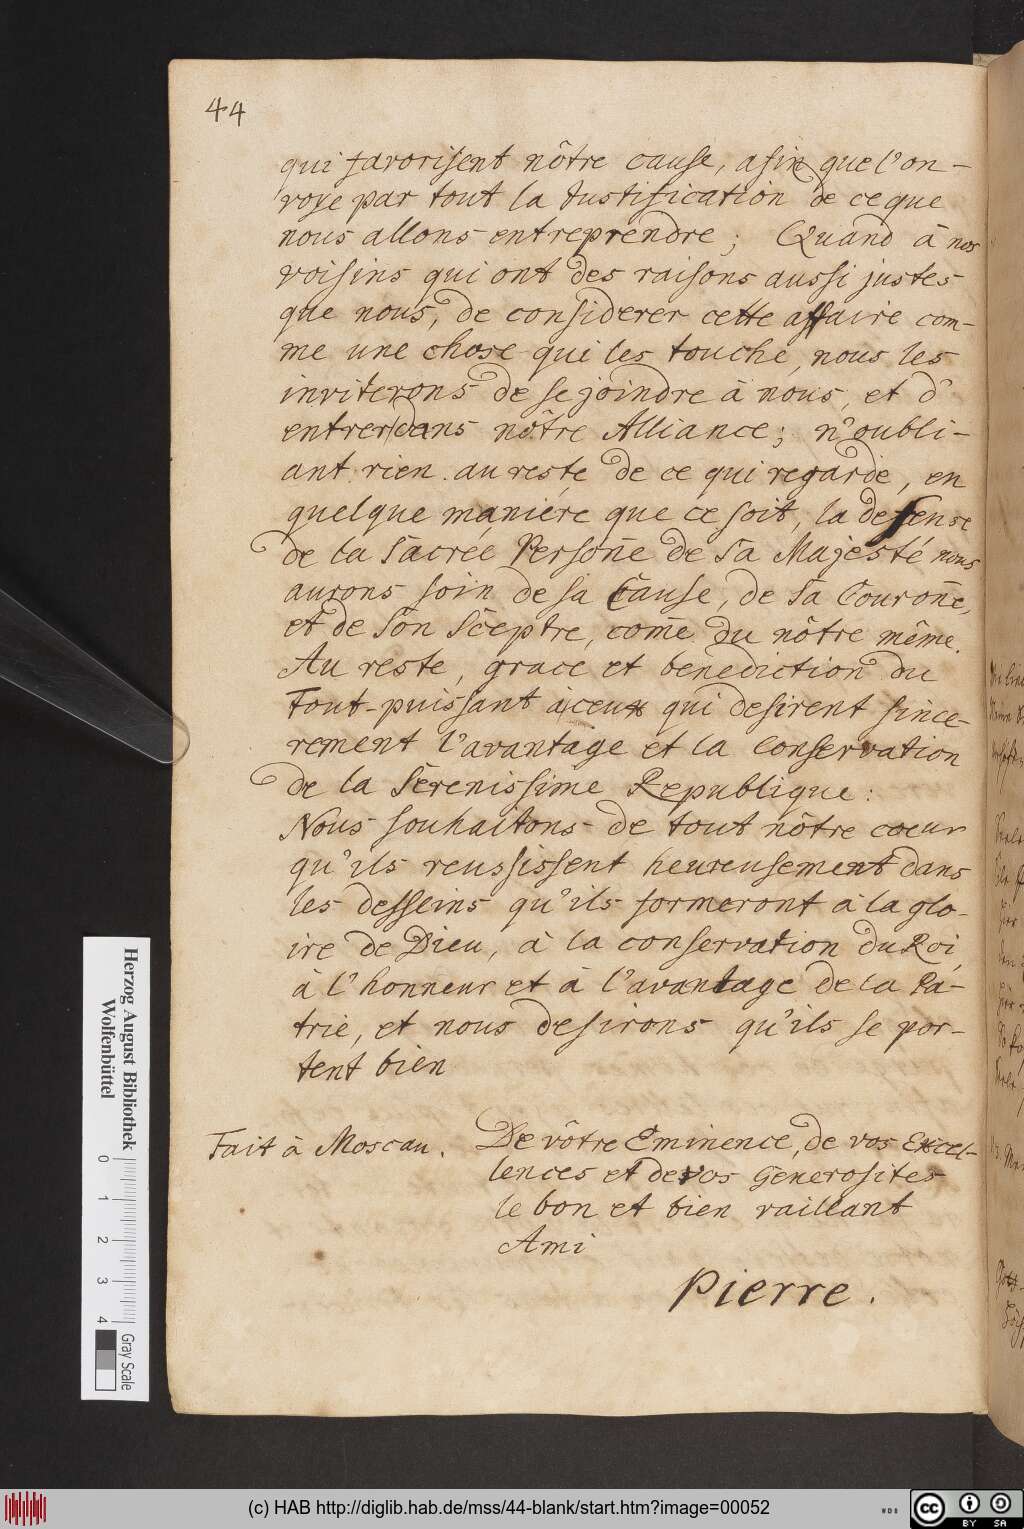 44
qui favorisent nôtre cause, afin que l'on-
voye par tout la Justification de ce que
nous allons entreprendre; Quand à nos
voisins qui ont des raisons aussi justes
que nous, de considerer cette affaire com-
me une chose qui les touche, nous les
inviterons de se joindre à nous, et d'
entrer dans nôtre Alliance; n'oubli-
ant rien au reste de ce qui regarde, en
quelque maniére que ce soit, la defense
de la Sacrée Persone de Sa Majesté nous
aurons soin de sa Cause, de Sa Courone,
et de Son Sceptre, come du nôtre même.
Au reste, grace et benediction du
Tout-puissant à ceux qui desirent since-
rement l'avantage et la Conservation
de la Serenissime Republique:
Nous souhaitons de tout nôtre coeur
qu'ils reussissent heureusement dans
les desseins qu'ils formeront à la glo-
ire de Dieu, à la conservation du Roi,
à l'honneur et à l'avantage de la Pa-
trie, et nous desirons qu'ils se por-
tent bien
Fait à Moscau. De vôtre Eminence, de vos Excel-
lences et de vos Generosites
le bon et bien vaillant
Ami
Pierre.
Herzog August Bibliothek
Wolfenbüttel
0 1 2 3 4
Gray Scale
(c) HAB http://diglib.hab.de/mss/44-blank/start.htm?image=00052
WDB
cc BY SA